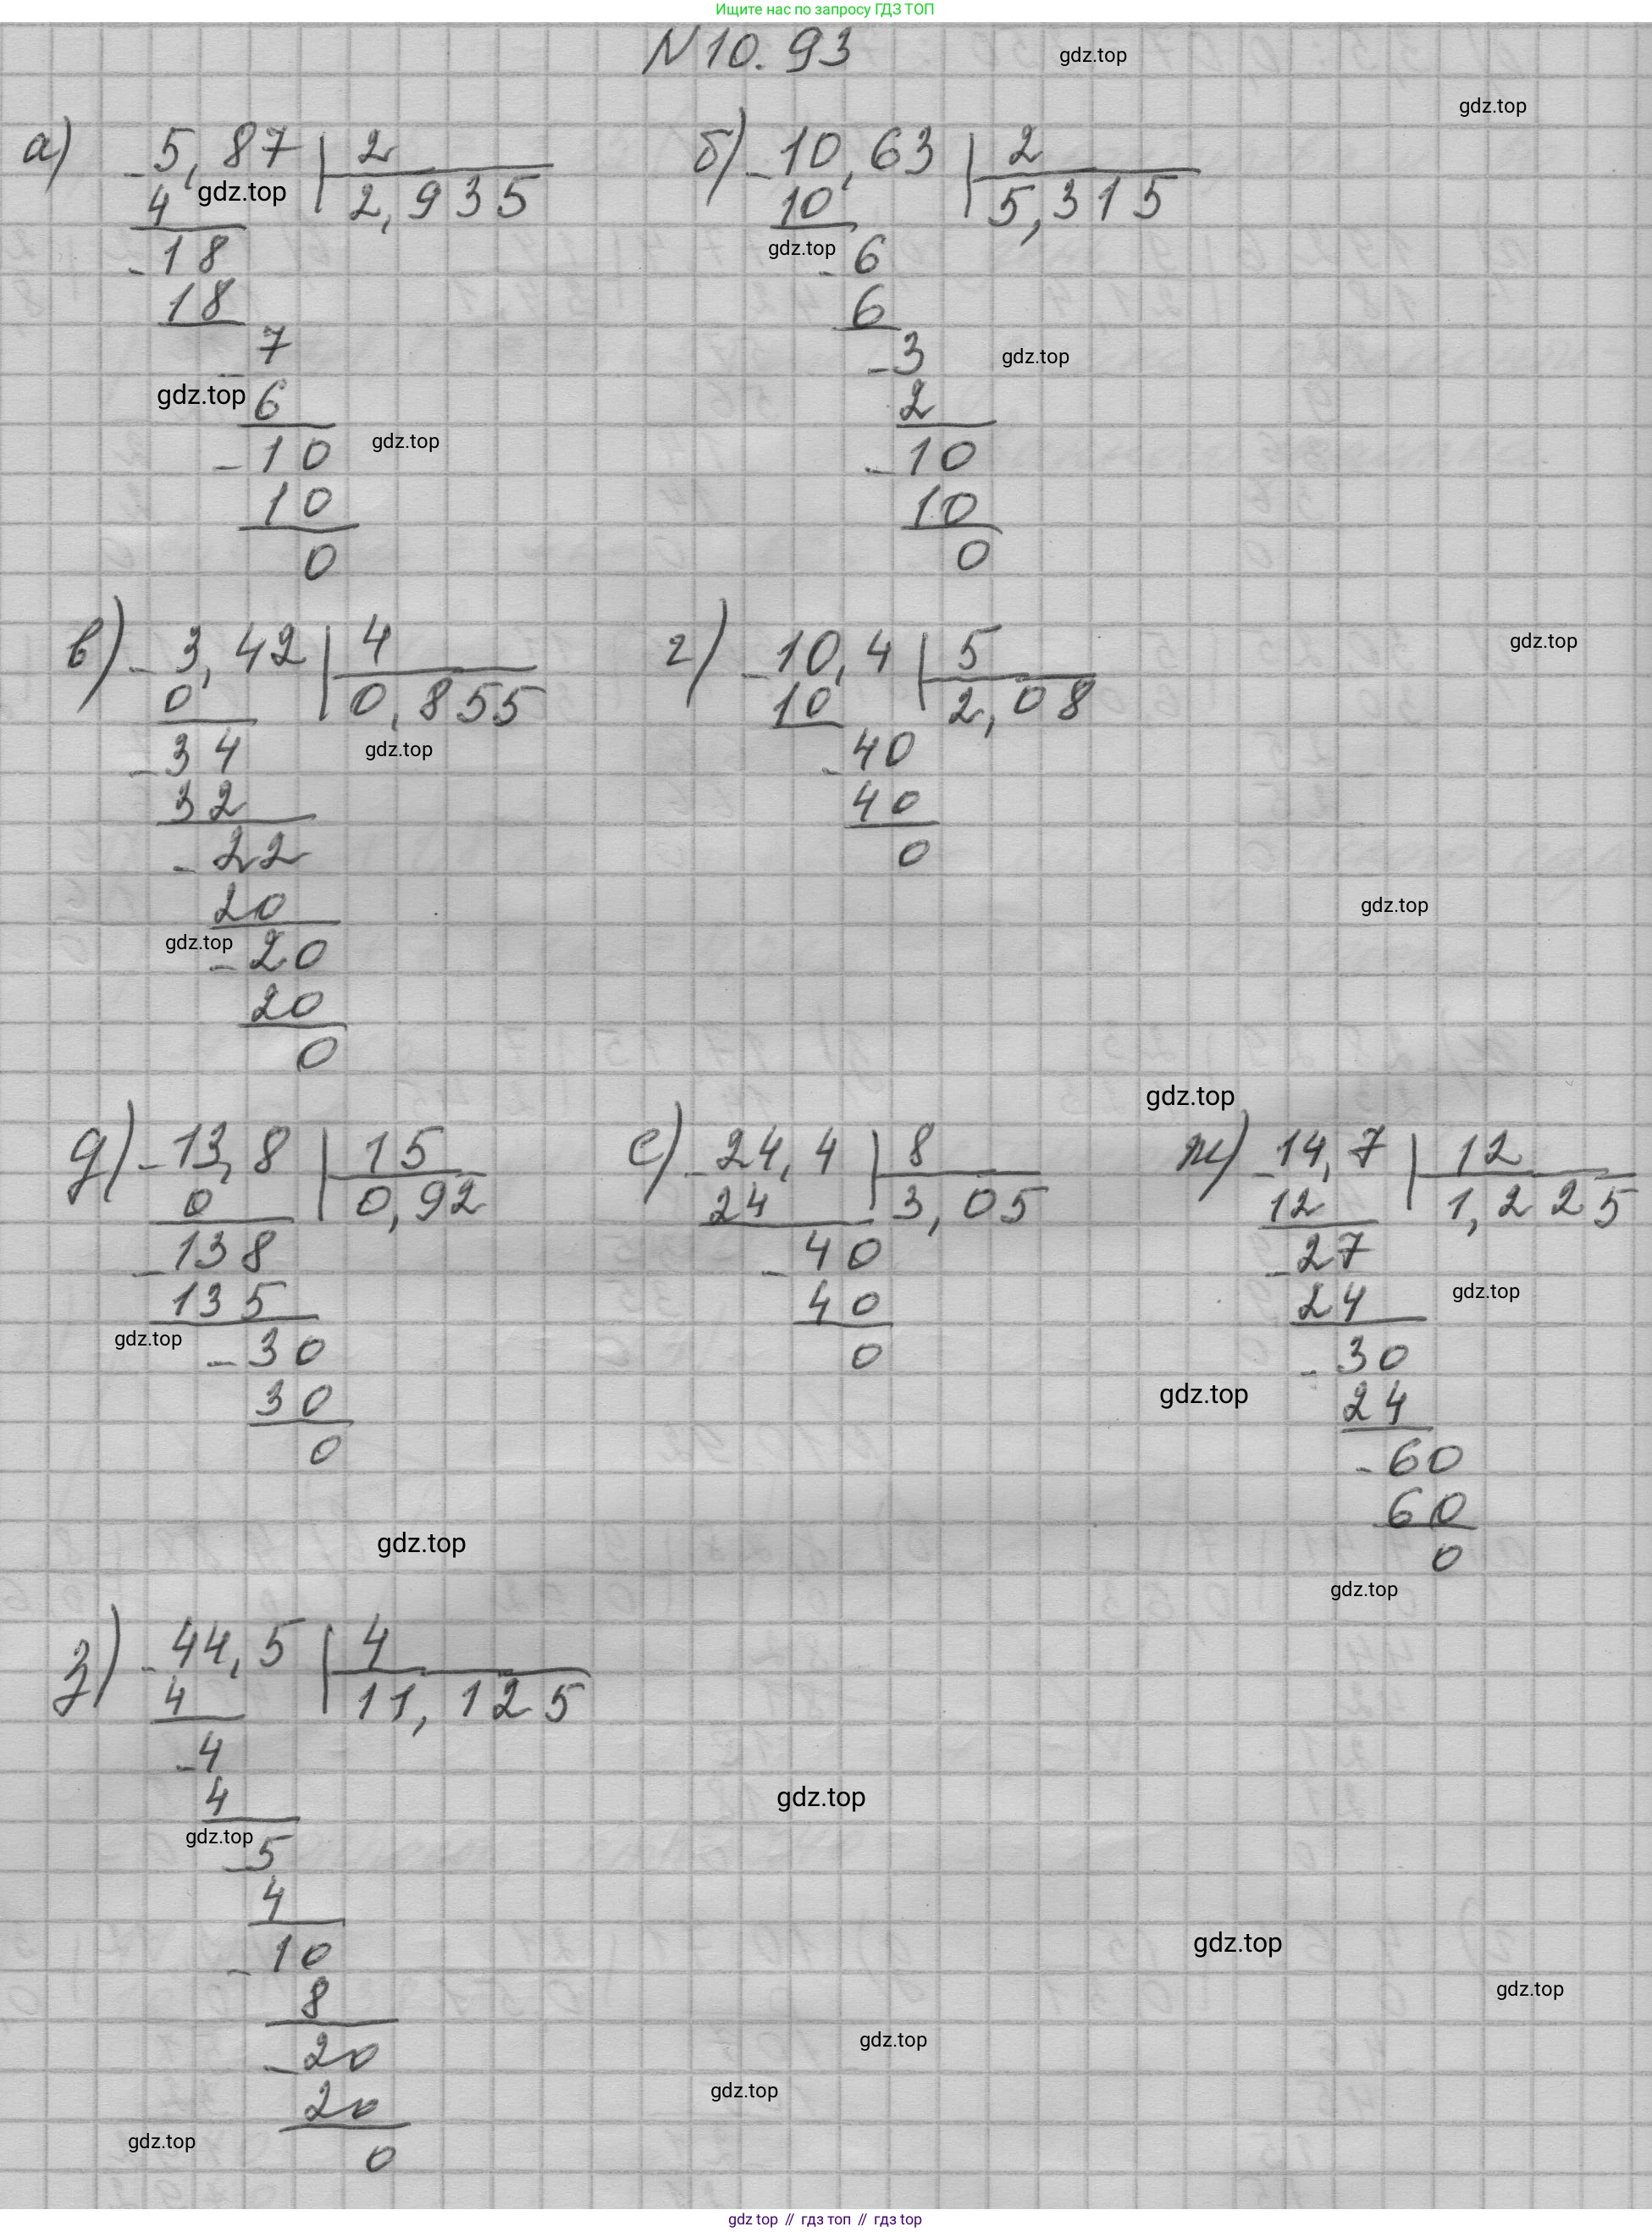 Ищите нас по запросу ГДЗ ТОП
N 10.93
gdz.top
gdz.top
а) - 5,87 | 2
4 gdz.top | 2,935
- 18
18
- 7
gdz.top 6
- 10 gdz.top
10
0
б) - 10,63 | 2
10 | 5,315
gdz.top - 6
6
- 3 gdz.top
2
- 10
10
0
в) - 3,42 | 4
0 | 0,855
- 34 gdz.top
32
- 22
20
gdz.top - 20
20
0
г) - 10,4 | 5
10 | 2,08
- 40
40
0
gdz.top
gdz.top
д) - 13,8 | 15
0 | 0,92
- 138
135
gdz.top - 30
30
0
е) - 24,4 | 8
24 | 3,05
- 40
40
0
gdz.top
ж) - 14,7 | 12
12 | 1,225
- 27
24 gdz.top
- 30
gdz.top 24
- 60
60
0
gdz.top
gdz.top
з) - 44,5 | 4
4 | 11,125
- 4
4
gdz.top - 5
4
- 10
8
- 20
20
0
gdz.top
gdz.top
gdz.top
gdz.top
gdz.top
gdz.top
gdz top // гдз топ // гдз top